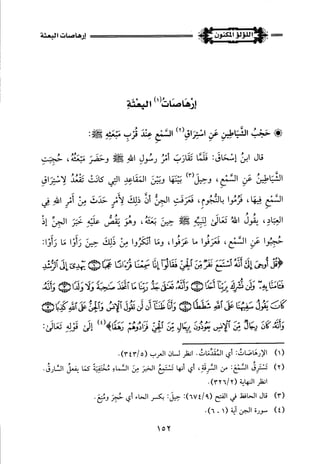 اللؤلؤ المكنون
إرهاصات البعثة
إِرْهَاصَاتُ(١) البَعْثَةِ
* حَجْبُ الشَّيَاطِينِ عَنِ اسْتِرَاقِ(٢) السَّمْعِ عِنْدَ قُرْبِ مَبْعَثِهِ ﷺ:
قَالَ ابْنُ إِسْحَاقَ: فَلَمَّا تَقَارَبَ أَمْرُ رَسُولِ اللهِ ﷺ وَحَضَرَ مَبْعَثُهُ، حُجِبَتِ
الشَّيَاطِينُ عَنِ السَّمْعِ، وَحِيلَ(٣) بَيْنَهَا وَبَيْنَ المَقَاعِدِ التِي كَانَتْ تَقْعُدُ لِاسْتِرَاقِ
السَّمْعِ فِيهَا، فَرُمُوا بِالنُّجُومِ، فَعَرَفَتِ الجِنُّ أَنَّ ذَلِكَ لِأَمْرٍ حَدَثَ مِنْ أَمْرِ اللهِ فِي
العِبَادِ، يَقُولُ اللهُ تَعَالَى لِنَبِيِّهِ ﷺ حِينَ بَعَثَهُ، وَهُوَ يَقُصُّ عَلَيْهِ خَبَرَ الجِنِّ إِذْ
حُجِبُوا عَنِ السَّمْعِ، فَعَرَفُوا مَا عَرَفُوا، وَمَا أَنْكَرُوا مِنْ ذَلِكَ حِينَ رَأَوْا مَا رَأَوْا:
﴿قُلْ أُوحِىَ إِلَىَّ أَنَّهُ ٱسْتَمَعَ نَفَرٌ مِّنَ ٱلْجِنِّ فَقَالُوٓا۟ إِنَّا سَمِعْنَا قُرْءَانًا عَجَبًا ۝ يَهْدِىٓ إِلَى ٱلرُّشْدِ
فَـَٔامَنَّا بِهِۦ وَلَن نُّشْرِكَ بِرَبِّنَآ أَحَدًا ۝ وَأَنَّهُۥ تَعَٰلَىٰ جَدُّ رَبِّنَا مَا ٱتَّخَذَ صَٰحِبَةً وَلَا وَلَدًا ۝ وَأَنَّهُۥ
كَانَ يَقُولُ سَفِيهُنَا عَلَى ٱللَّهِ شَطَطًا ۝ وَأَنَّا ظَنَنَّآ أَن لَّن تَقُولَ ٱلْإِنسُ وَٱلْجِنُّ عَلَى ٱللَّهِ كَذِبًا ۝
وَأَنَّهُۥ كَانَ رِجَالٌ مِّنَ ٱلْإِنسِ يَعُوذُونَ بِرِجَالٍ مِّنَ ٱلْجِنِّ فَزَادُوهُمْ رَهَقًا﴾(٤) إِلَى قَوْلِهِ تَعَالَى:
(١) الإرهاصات: أي المُقَدِّمَات. انظر لسان العرب (٣٤٣/٥).
(٢) تَسْتَرِقُ السَّمْعَ: من السَّرِقَةِ، أي أنها تَسْتَمِعُ الخبرَ مِنَ السماءِ مُخْتَفِيَة كما يفعلُ السَّارِقُ.
انظر النهاية (٣٢٦/٢).
(٣) قال الحافظ في الفتح (٦٧٤/٩): حِيلَ: بكسر الحاء أي حُجِزَ ومُنِعَ.
(٤) سورة الجن آية (١ - ٦).
١٥٢